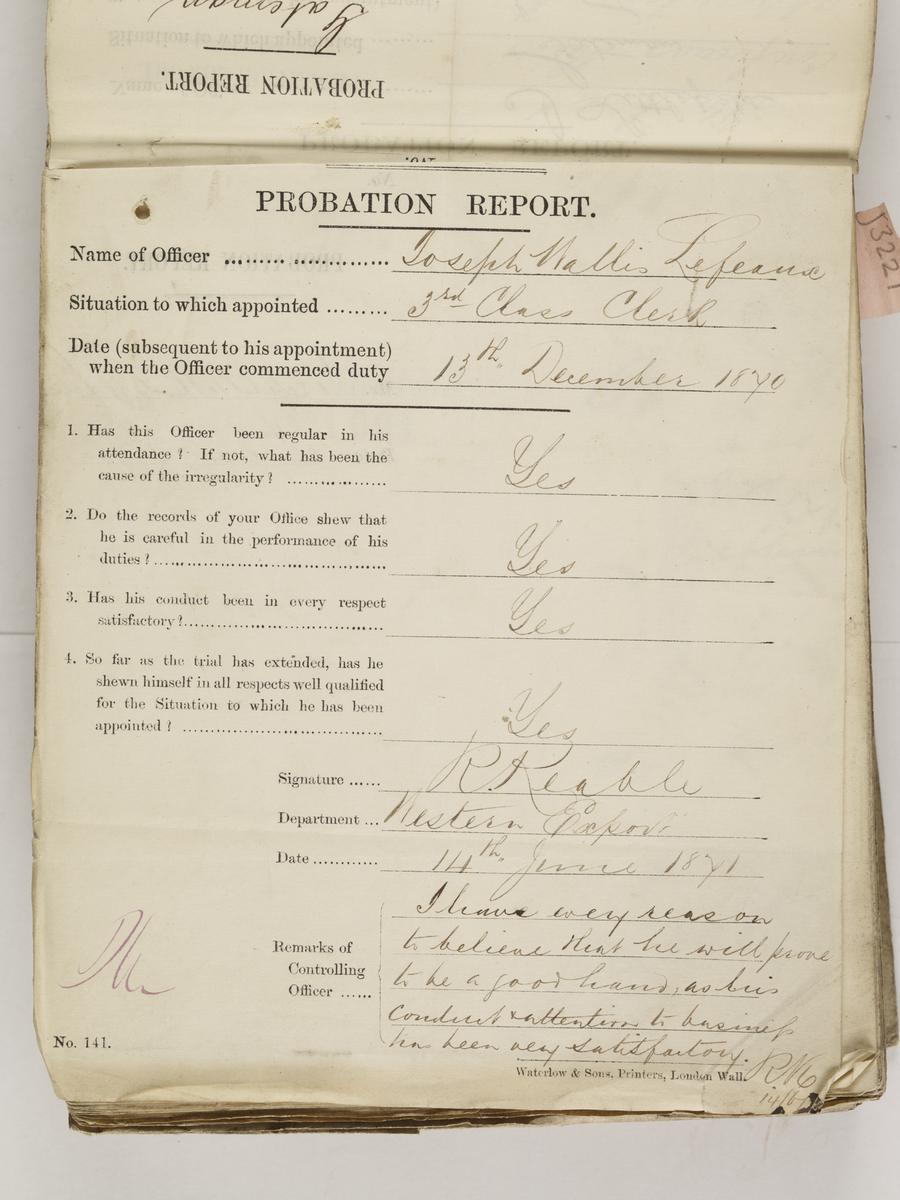 Gatesman
PROBATION REPORT.
PROBATION REPORT.
Name of Officer Joseph Wallis Lefeaux
Situation to which appointed 3rd Class Clerk
Date (subsequent to his appointment)
when the Officer commenced duty 13th December 1870
1. Has this Officer been regular in his
attendance? If not, what has been the
cause of the irregularity? Yes
2. Do the records of your Office shew that
he is careful in the performance of his
duties? Yes
3. Has his conduct been in every respect
satisfactory? Yes
4. So far as the trial has extended, has he
shewn himself in all respects well qualified
for the Situation to which he has been
appointed? Yes
Signature R Keable
Department Western Export
Date 14th June 1871
I have every reason
Remarks of to believe that he will prove
Controlling to be a good hand, as his
Officer conduct & attention to business
has been very satisfactory.
No. 141.
RK
14/6/71
Waterlow & Sons, Printers, London Wall.
J3221